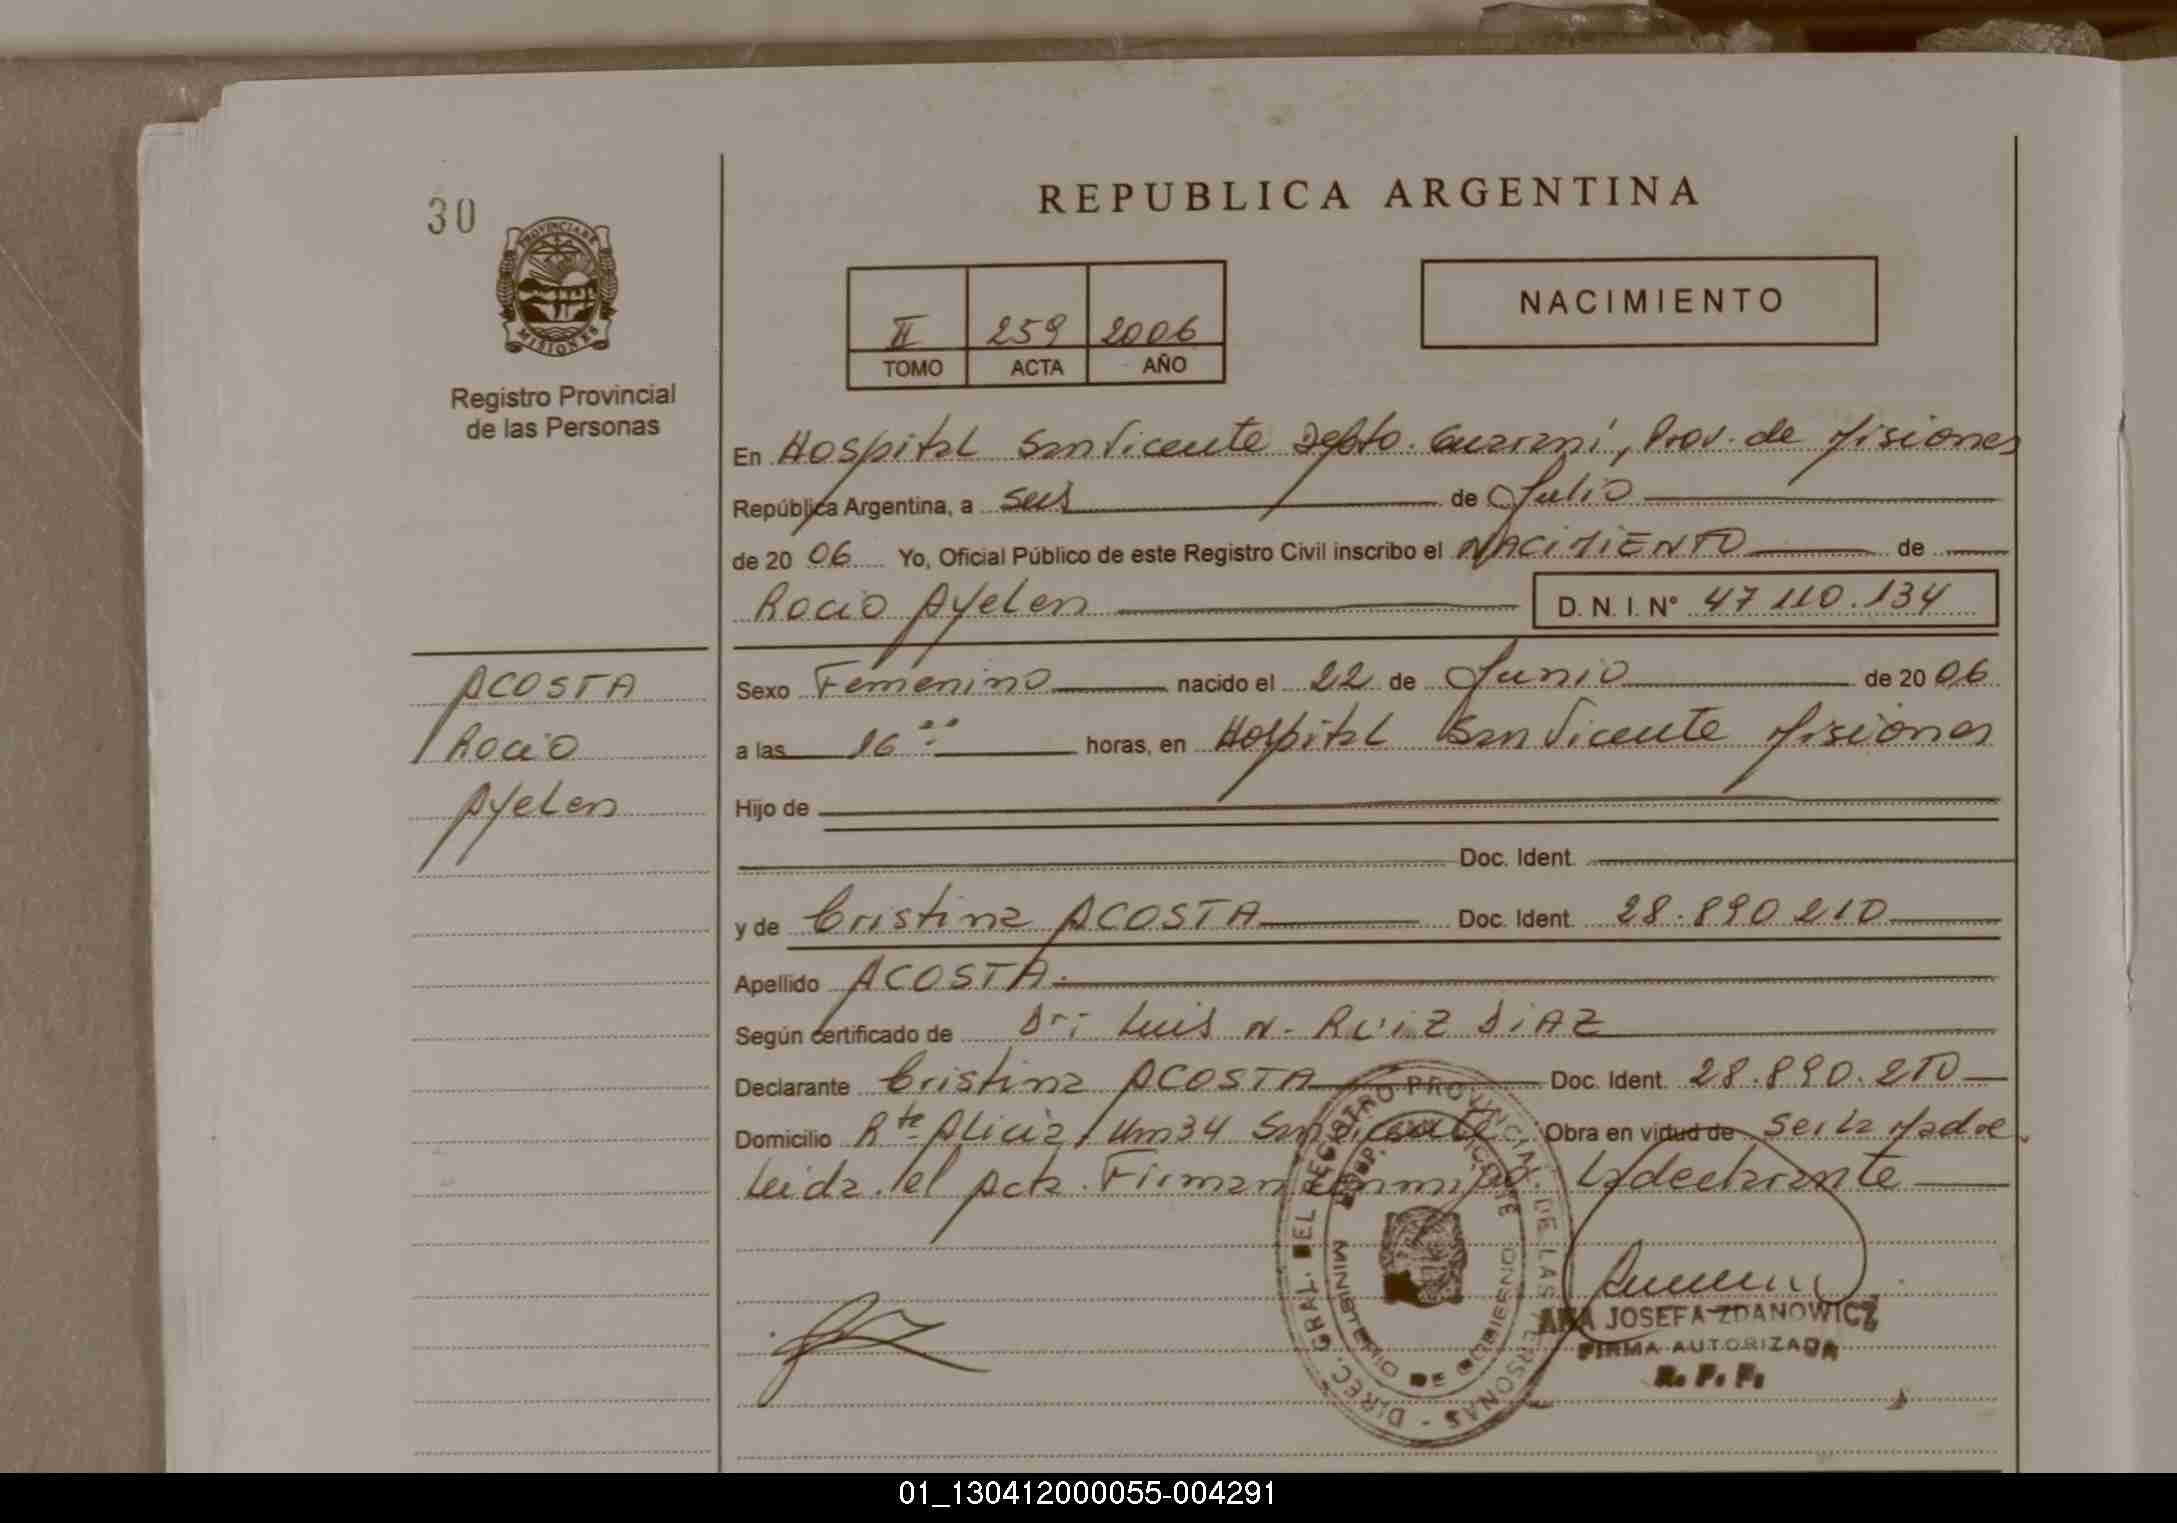 30
PROVINCIA DE
MISIONES
Registro Provincial
de las Personas
REPUBLICA ARGENTINA
II 259 2006
TOMO ACTA AÑO
NACIMIENTO
En Hospital San Vicente Depto. Guarani, Prov. de Misiones
República Argentina, a seis de Julio
de 20 06 Yo, Oficial Público de este Registro Civil inscribo el NACIMIENTO de
Rocio Ayelen D. N. I. Nº 47 110.134
ACOSTA
Rocio
Ayelen
Sexo Femenino nacido el 22 de Junio de 20 06
a las 16 horas, en Hospital San Vicente Misiones
Hijo de
Doc. Ident.
y de Cristina ACOSTA Doc. Ident. 28.890 210
Apellido ACOSTA.
Según certificado de Dr: Luis N. RUiZ DiAZ
Declarante Cristina ACOSTA Doc. Ident. 28.890.210
Domicilio Rte Alicia, Km34 San Vicente Obra en virtud de Ser la Madre.
Leida el Acta Firman conmigo. La declarante
DIREC. GRAL. DEL REGISTRO PROVINCIAL DE LAS PERSONAS -
MINISTERIO DE GOBIERNO
ANA JOSEFA ZDANOWICZ
FIRMA AUTORIZADA
R. P. P.
01_130412000055-004291